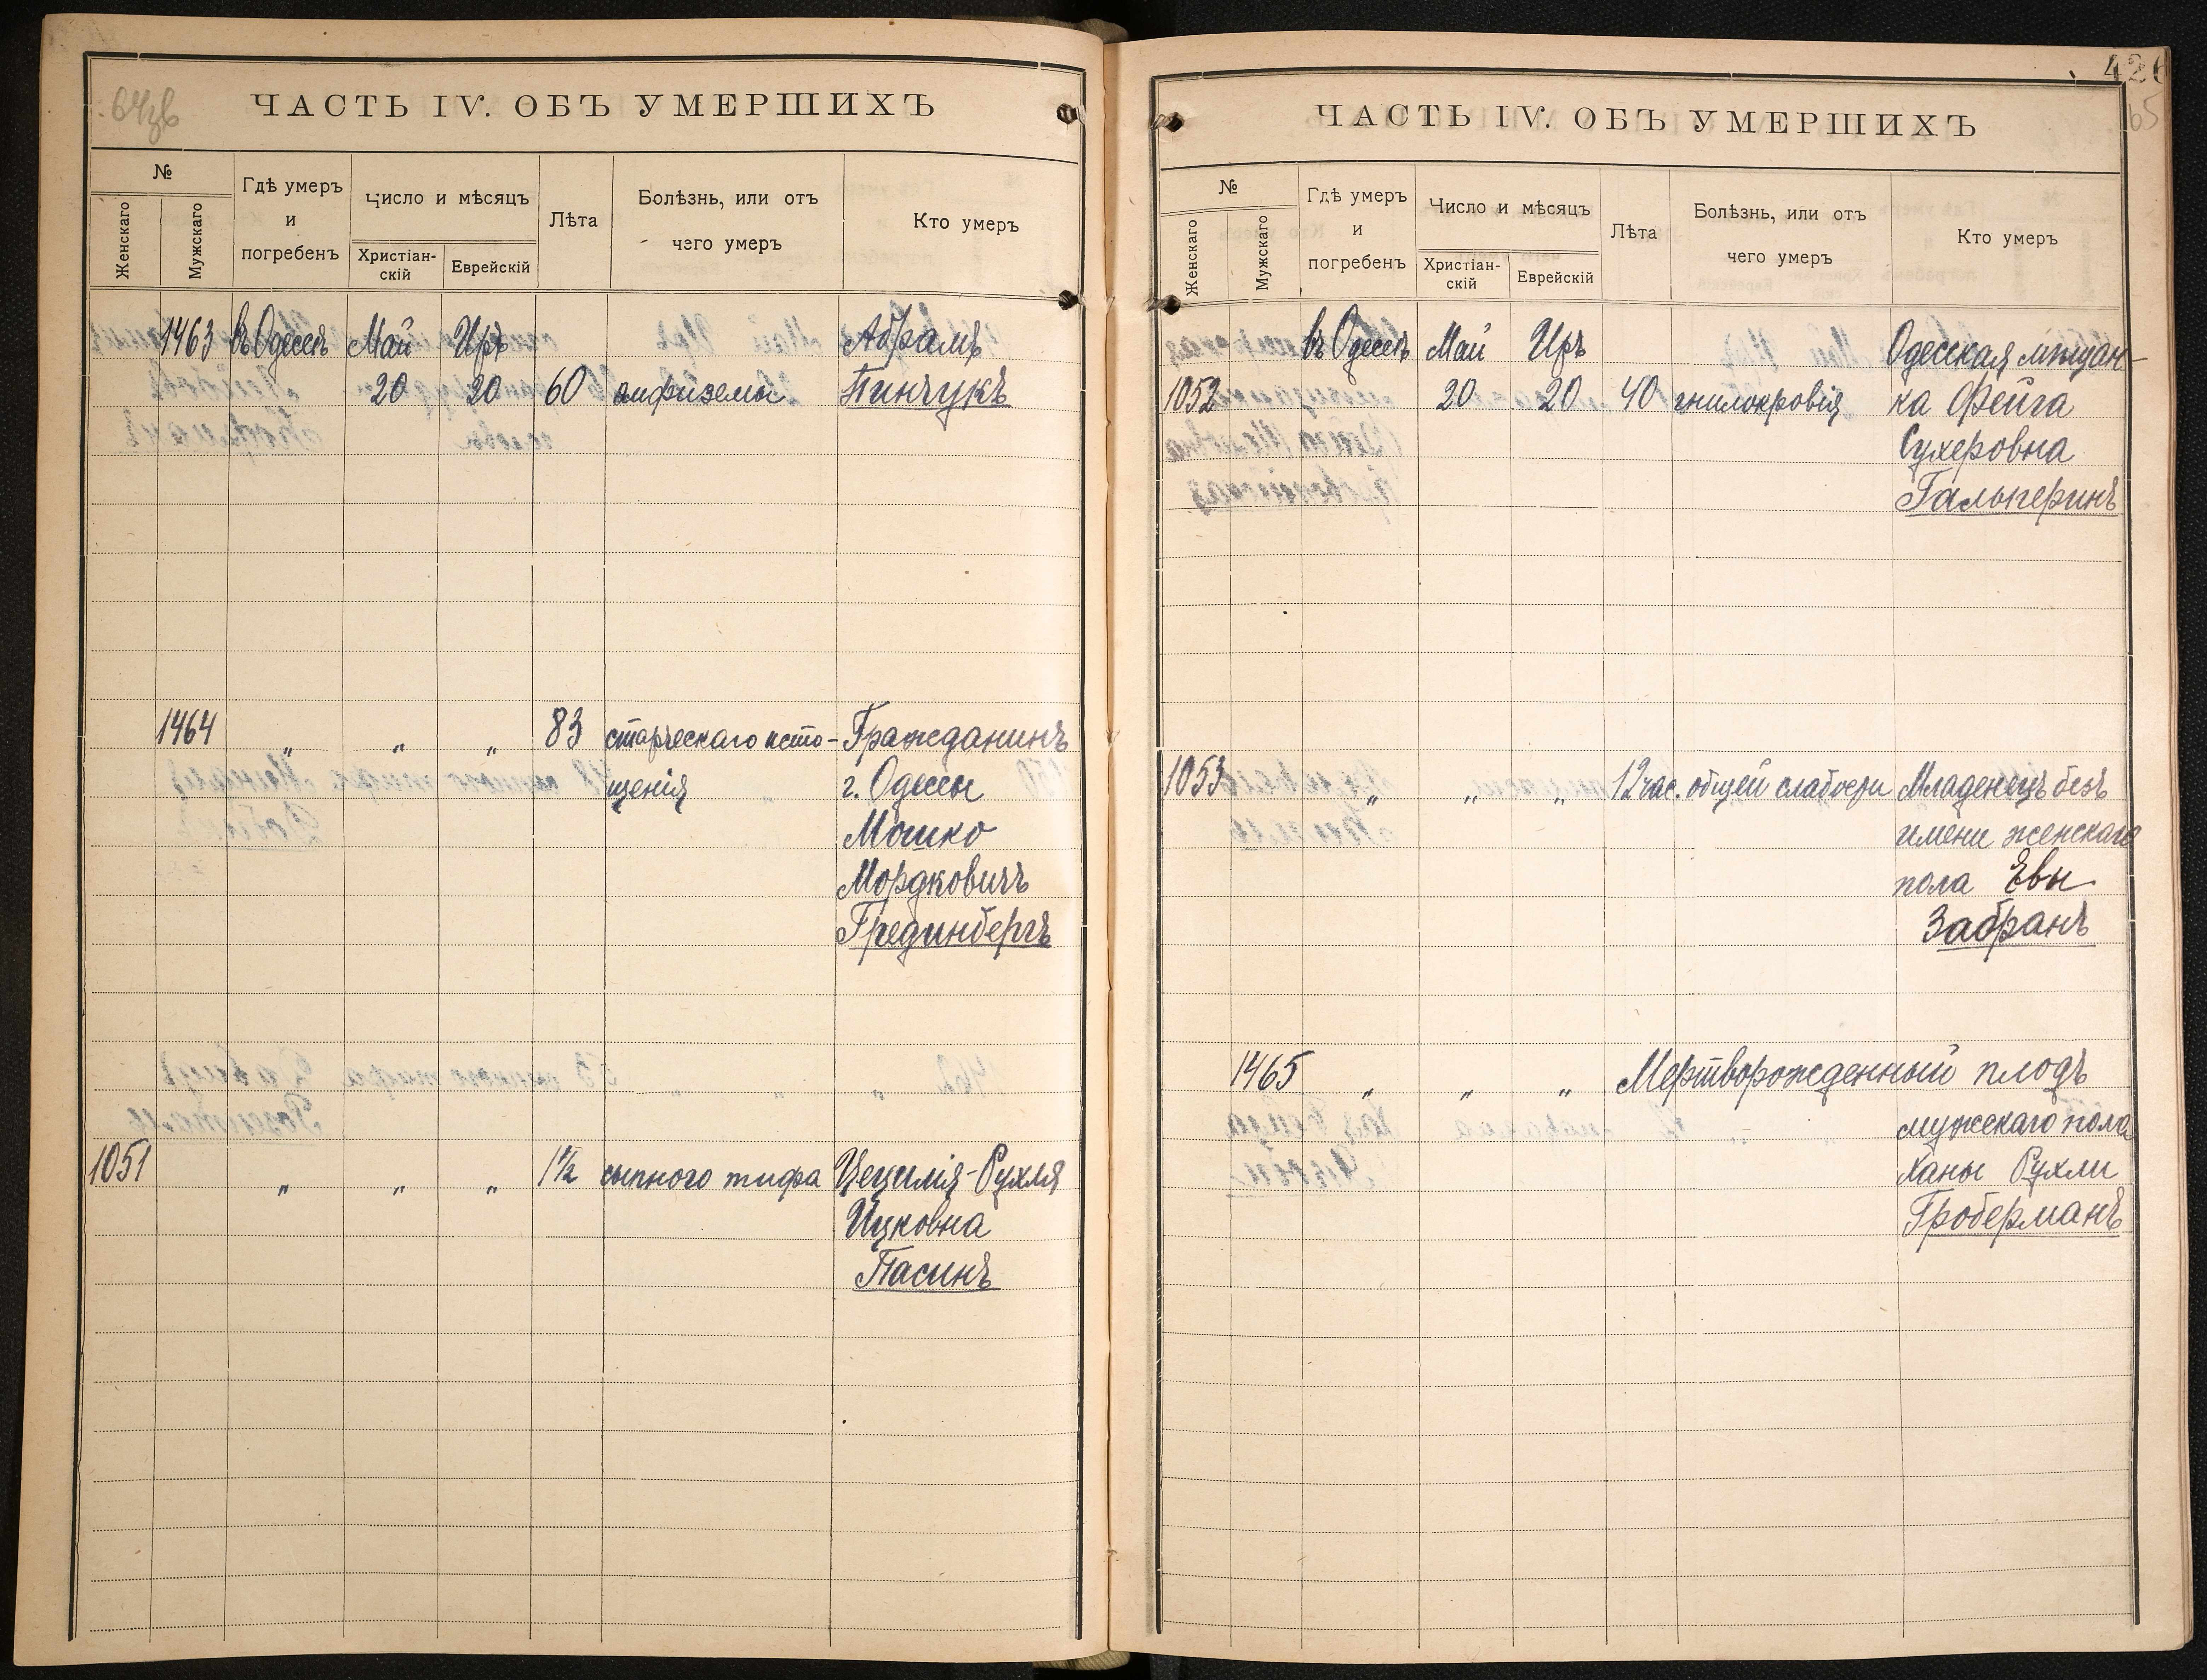 64зв
ЧАСТЬ IV. ОБЪ УМЕРШИХЪ
№
Женскаго
Мужскаго
Гдѣ умеръ
и
погребенъ
Число и мѣсяцъ
Христіан-
скій
Еврейскій
Лѣта
Болѣзнь, или отъ
чего умеръ
Кто умеръ
1463 въ Одессѣ Май Иръ Абрамъ
20 20 60 эмфиземы Пинчукъ
1464 „ „ „ 83 старческаго исто- Гражданинъ
щенія г. Одессы
Мошко
Мордковичъ
Грединбергъ
1051 „ „ „ 1½ сыпного тифа Цецилія-Рухля
Ицковна
Пасинъ
426
65
ЧАСТЬ IV. ОБЪ УМЕРШИХЪ
№
Женскаго
Мужскаго
Гдѣ умеръ
и
погребенъ
Число и мѣсяцъ
Христіан-
скій
Еврейскій
Лѣта
Болѣзнь, или отъ
чего умеръ
Кто умеръ
въ Одессѣ Май Иръ Одесская мѣщан-
1052 20 20 40 гнилокровія ка Фейга
Сухеровна
Гальперинъ
1053 „ „ „ 12 час. общей слабости Младенецъ безъ
имени женскаго
пола Евы
Забранъ
1465 „ „ „ Мертворожденный плодъ
мужскаго пола
Ханы Рухли
Гроберманъ